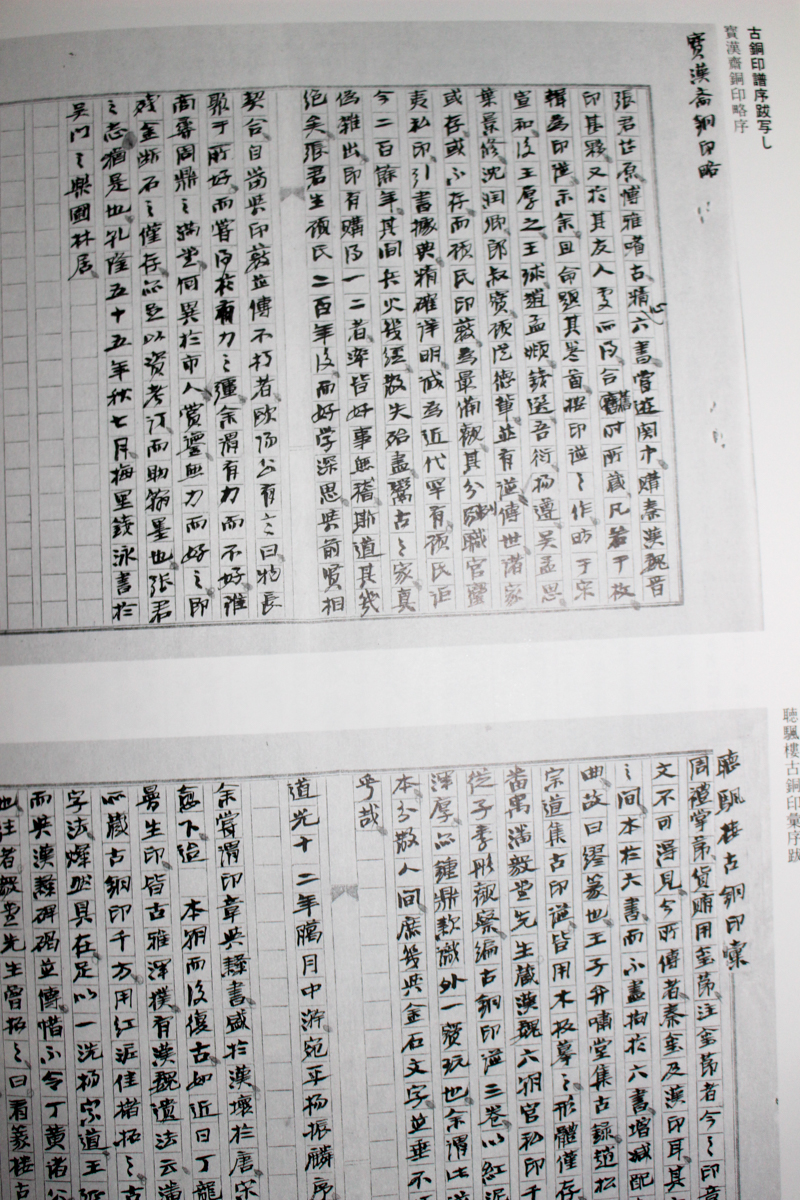 古銅印譜序跋写し
宝漢齋銅印略序
寶漢斎銅印略
張君芷原博雅嗜古精心六書嘗遊関中購秦漢魏晋
印甚夥又於其友人處而得合舊時所蔵凡若干枚
輯為印譜示余且命題其巻首按印譜之作昉于宋
宣和後王厚之王球趙孟頫錢選吾衍楊遵呉孟思
葉景修沈润卿郎叔寶顧従德輩並有譜傳世諸家
或存或不存而顧氏印薮為最備觀其分別職官璽
夷私印引書據典精確详明诚為近代罕有顧氏距
今二百餘年其间兵火幾經散失殆盡鬻古之家真
偽雜出印有購得一二者率皆好事無稽斯道其幾
绝矣張君生顧氏二百年後而好学深思與前賢相
契合自當與印薮並傳不朽者欧陽公有言曰物長
聚于所好而嘗得於有力之彊余謂有力而不好雖
商尊周鼎之满堂何異於市人賞鑒無力而好之即
残金断石之僅存亦足以資考订而助翰墨也張君
之志猶是也乾隆五十五年秋七月梅里錢泳書於
吴门之樂圃林居
聴颿樓古銅印彙序跋
聴颿楼古銅印彙
周禮掌節貨賄用璽節注璽節者今之印章
文不可得見今所傳者秦璽及漢印耳其
之间本於六書而不盡拘於六書增減配
曲故曰繆篆也王子弁嘯堂集古録趙松
宗道集古印譜皆用木板摹之形體僅存
番禺潘毅堂先生蔵漢魏六朝官私印千
從子季彤觀察编古銅印譜三卷以紅泥
渾厚亦鐘鼎款識外一寶玩也余謂此譜
本分散人间庶幾與金石文字並垂不
乎哉
道光十二年臈月中澣宛平杨振麟序
余嘗謂印章與隸書盛於漢壞於唐宋
愈下逮 本朝而後復古如近日丁龍
曼生印皆古雅渾樸有漢魏遺法云潘
所蔵古銅印千方用紅泥佳楮拓之古
字法燦然具在足以一洗杨宗道王
而與漢隸碑碣並傳惜不令丁黄诸公
也往者毅堂先生曾拓之曰看篆樓古